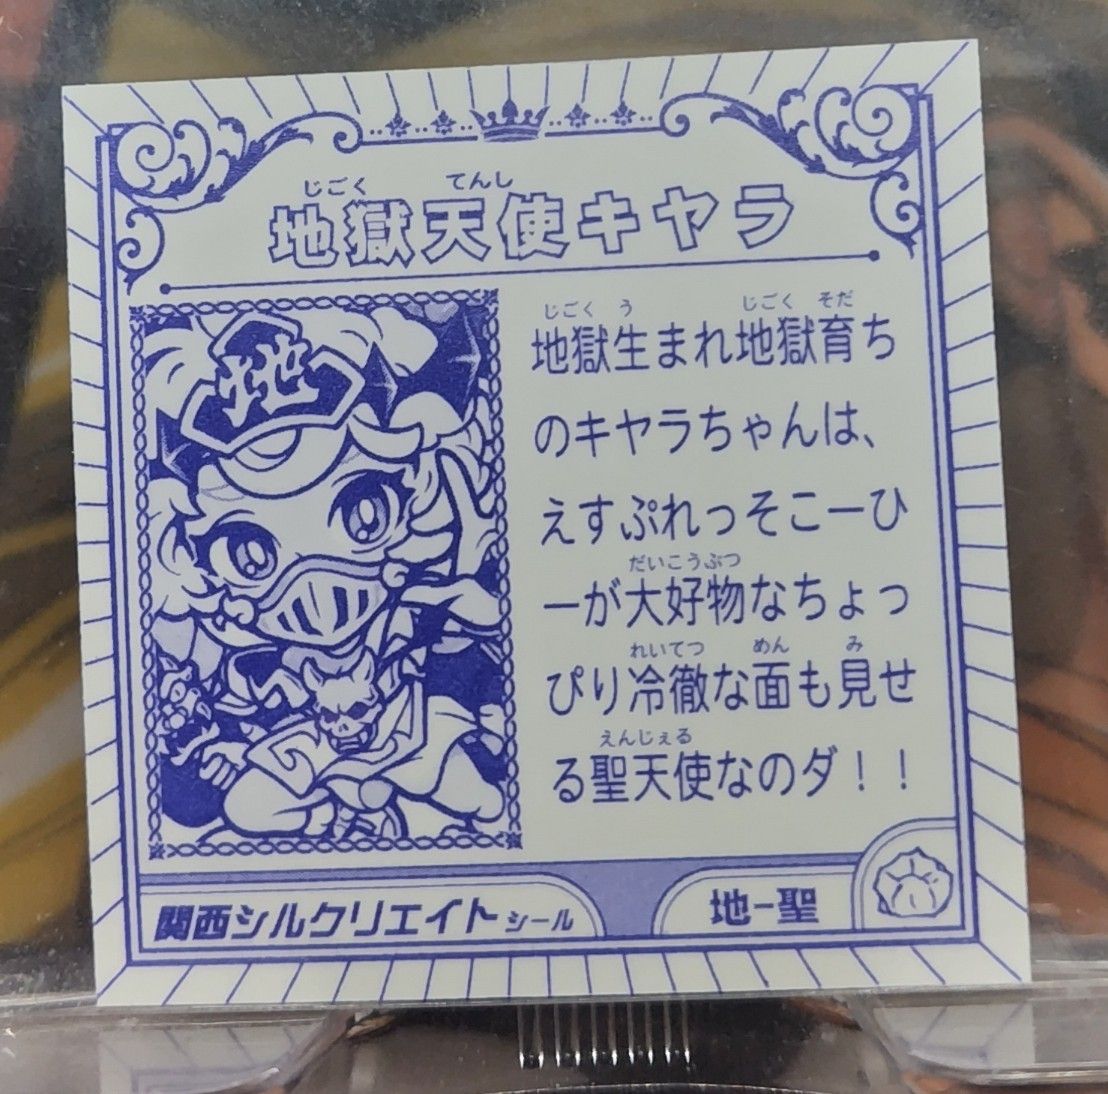 じごく てんし
地獄天使キャラ
地
じごく う じごく そだ
地獄生まれ地獄育ち
のキャラちゃんは、
えすぷれっそこーひ
だいこうぶつ
ーが大好物なちょっ
れいてつ めん み
ぴり冷徹な面も見せ
えんじぇる
る聖天使なのダ！！
関西シルクリエイトシール
地-聖